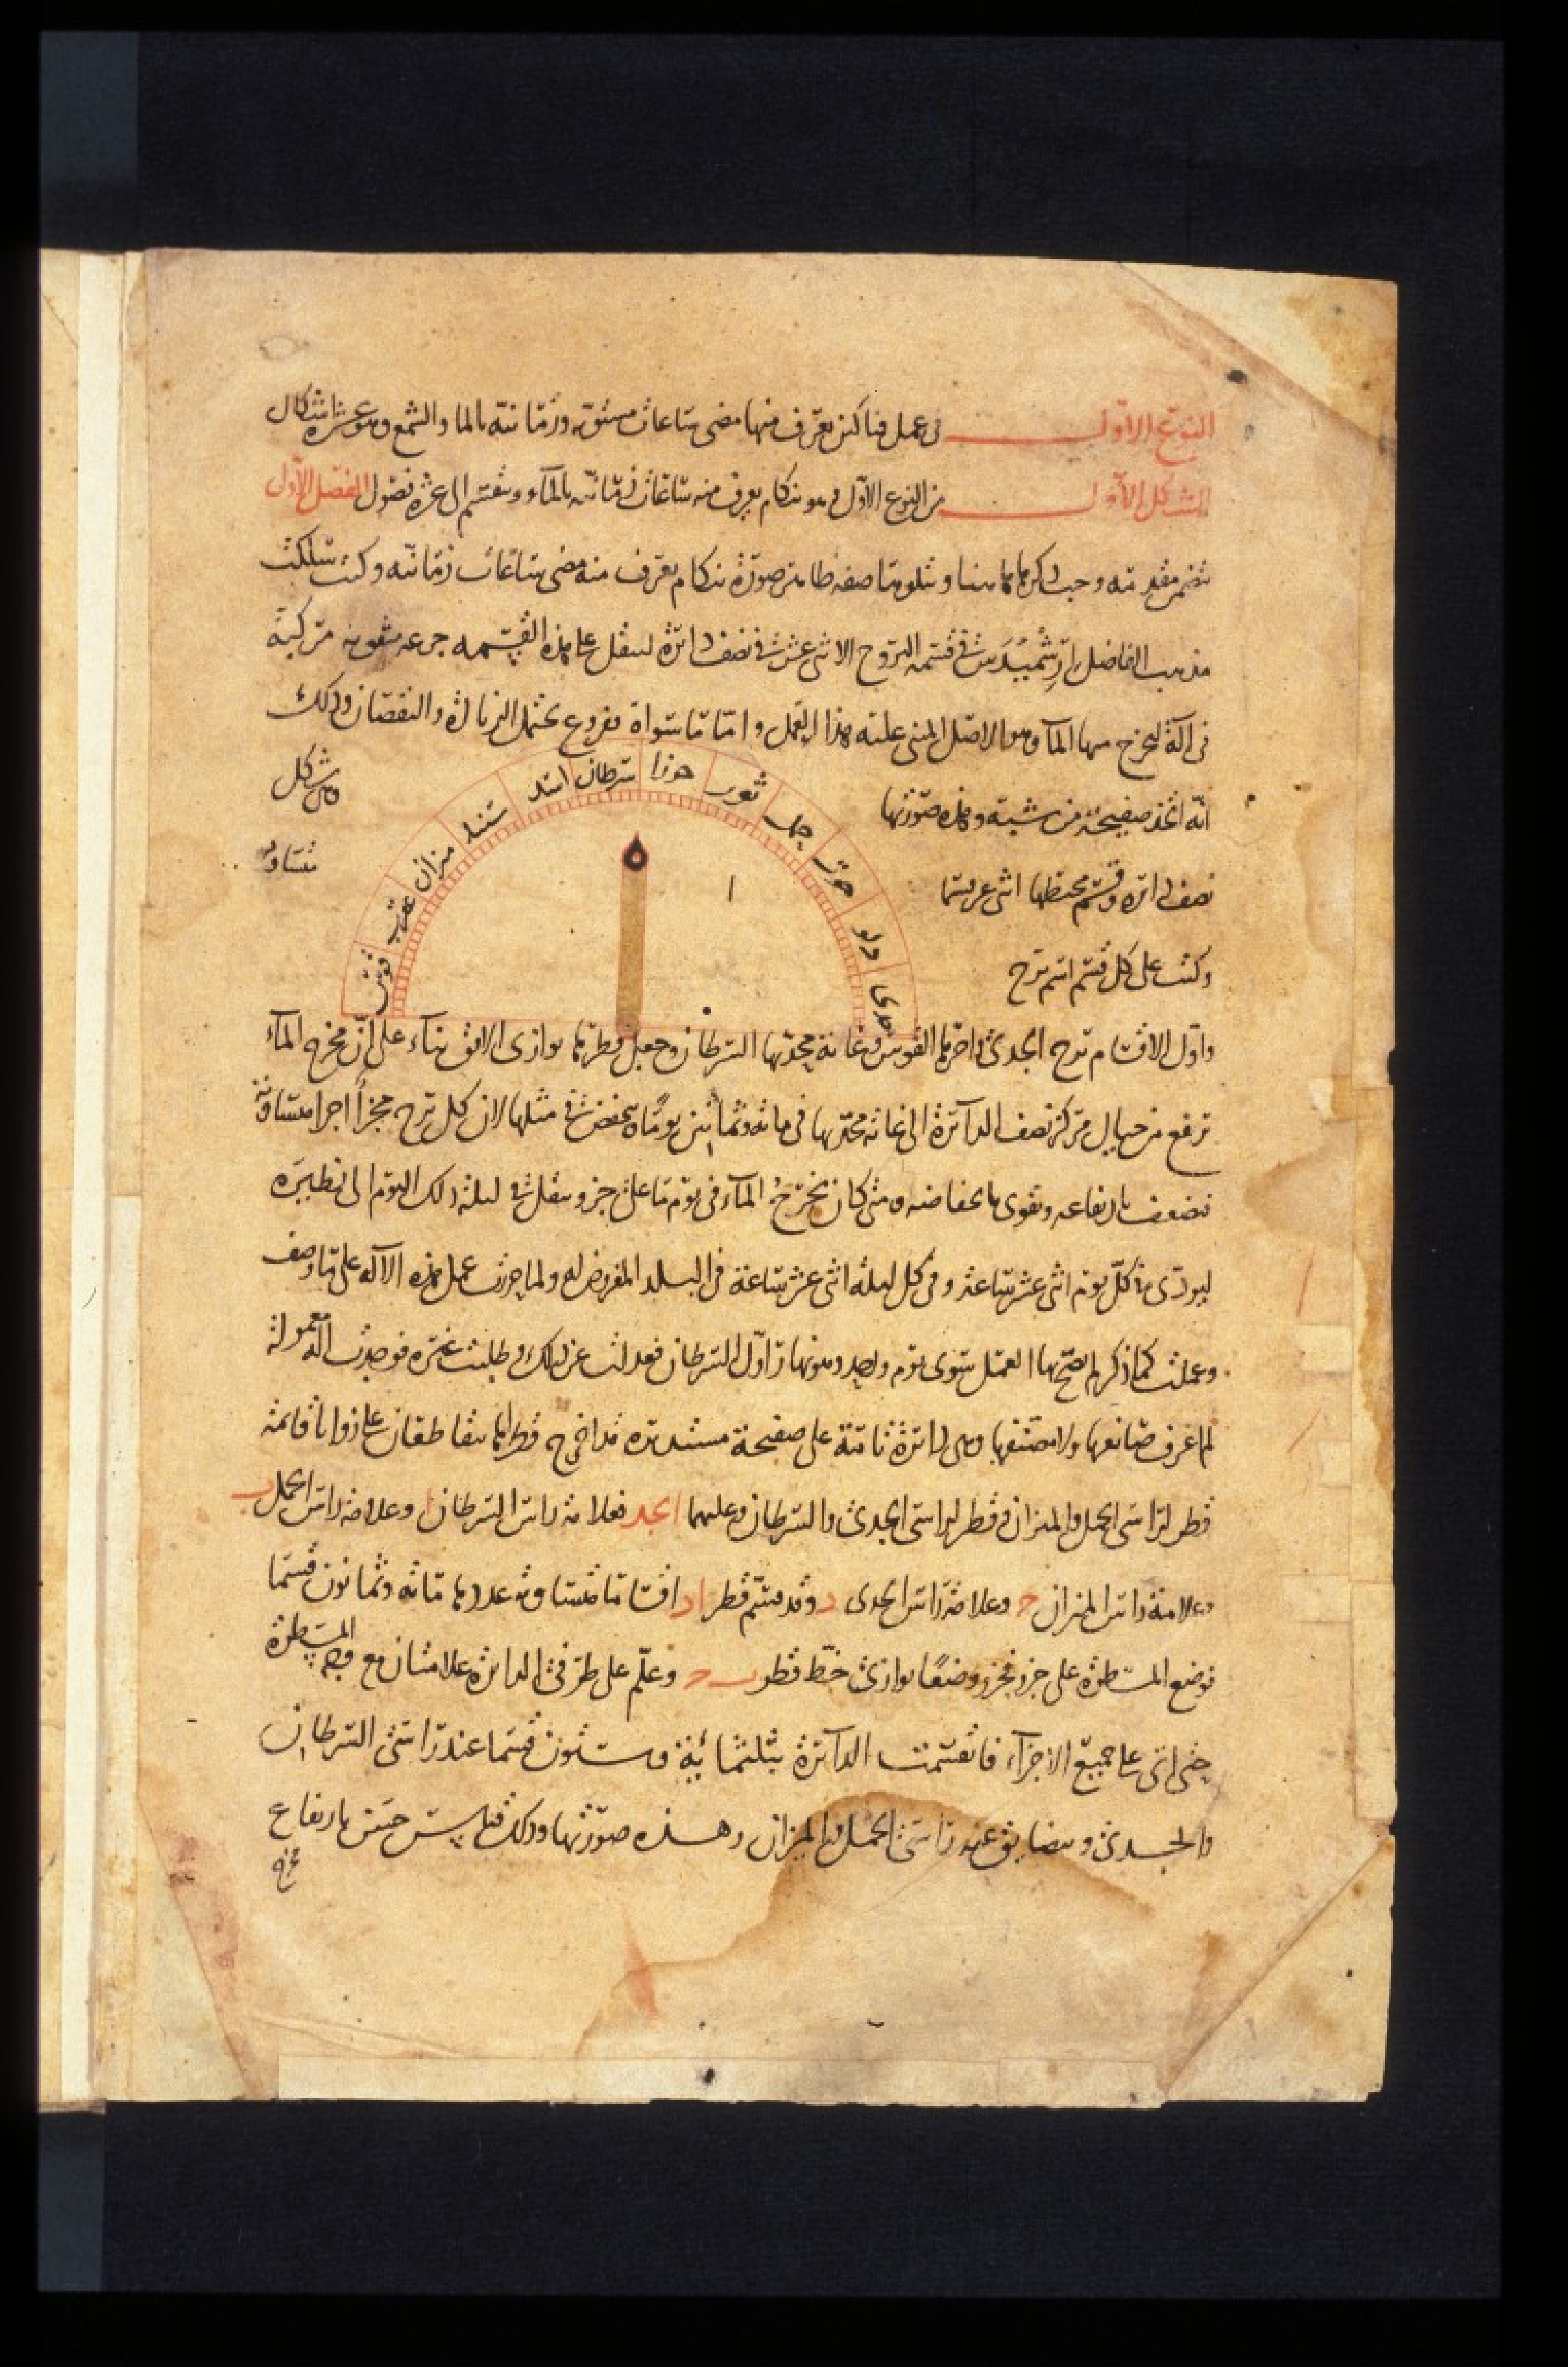 النوع الاول في عمل فناكين يعرف منها مضى ساعات مستوية وزمانية بالما والشمع وهو عشرة اشكال
الشكل الاول من النوع الاول وهو بنكام يعرف منه ساعات زمانية بالمآء وينقسم الى عشرة فصول الفصل الاول
مقدمة وجب ذكرها ههنا ويتلوها صفة ظاهر صورة بنكام يعرف منه مضى ساعات زمانية وكنت سلكت
مذهب الفاضل ارشميدس في قسمه البروج الاثنى عشر في نصف دائرة لينقل على هذه القسمه جزعه مثقوبه مركبة
في آلة ليخرج منها المآ وهو الاصل المبنى عليه هذا العمل واما ما سواه فروع يحتمل الزيادة والنقصان وذلك
انه اتخذ صفيحة من شبه وهذه صورتها
شكل
نصف دائره وقسم محيطها اثنى عشر قسما
متساويه
وكتب على كل قسم اسم برج
جدى
دلو
حوت
حمل
ثور
جوزا
سرطان
اسد
سنبله
ميزان
عقرب
قوس
ا
واول الاقسام برج الجدى واخرها القوس وغاية محدبها السرطان وجعل قطرها يوازى الافق بنآء على ان مخرج المآء
ترفع من حيال مركز نصف الدآئرة الى غاية محدبها في مائه وثمانين يوما وينخفض في مثلها لان كل برج مجزأ اجزا متساوية
فيضعف بارتفاعه ويقوى بانخفاضه ومتى كان مخرج المآء في يوم ما على جزء ينقل في ليلة ذلك اليوم الى نظيره
ليؤدى في كل يوم اثنى عشر ساعة وفي كل ليلة اثنى عشر ساعة في البلد المفروض له ولما حررت عمل هذه الآله على ما وصف
وعملت كما ذكر لم يصح بها العمل سوى يوم واحد وهو نهار اول السرطان فعدلت عن ذلك وطلبت غيره فوجدت آلة معمولة
لم اعرف صانعها ولا مصنفها وهى دائرة تامة على صفيحة مستديره قد اخرج قطراها يتقاطعان على زوايا قائمة
قطر لراسى الحمل والميزان وقطر لراسى الجدى والسرطان وعليهما ابجد فعلامة راس السرطان ا وعلامة راس الحمل ب
وعلامة راس الميزان ج وعلامة راس الجدى د وقد قسم قطر اد اقساما متساوية عددها مائه وثمانون قسما
توضع المسطرة على جزء فجزء وضعا يوازى خط قطر ب ج وعلم على طرفي الدائرة علامتان مع وجه المسطرة
حتى اتى على جميع الاجزآء فانقسمت الدآئرة بثلثمائة وستون قسما عند راسى السرطان
والجدى ويضايق عند راسى الحمل والميزان وهذه صورتها وذلك قياس حسن بارتفاع
مخرج